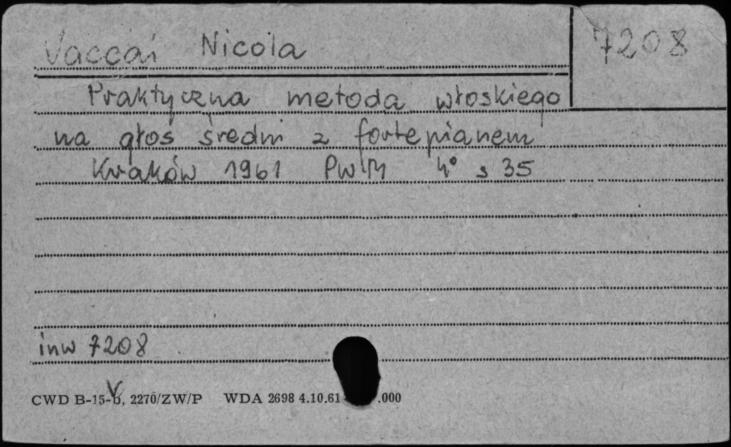 Vaccai Nicola
7208
Praktyczna metoda włoskiego
na głos średni z fortepianem
Kraków 1961 PWM 4° s 35
inw 7208
CWD B-15-b, 2270/ZW/P WDA 2698 4.10.61 .000